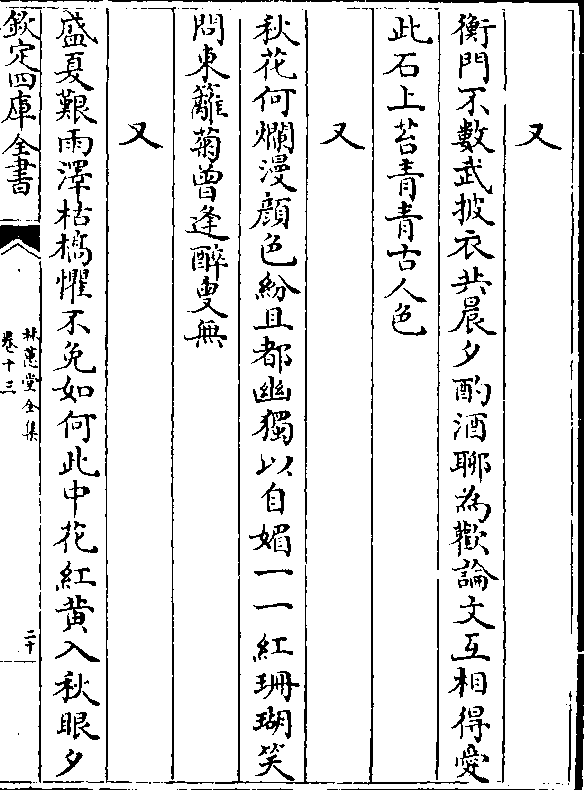 又
衡門不數武披衣共晨夕酌酒聊為歡論文互相得愛
此石上苔青青古人色
又
秋花何爛漫顔色紛且都幽獨以自媚一一紅珊瑚笑
問東籬菊曾逢醉叟無
又
盛夏艱雨澤枯槁懼不免如何此中花紅黄入秋眼夕
欽定四庫全書
林蕙堂全集
卷十三
二十